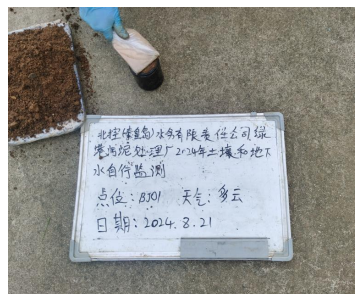 北控(秦皇岛)水务有限责任公司绿
港污泥处理厂2024年土壤和地下
水自行监测
点位:BJ01 天气:多云
日期:2024.8.21